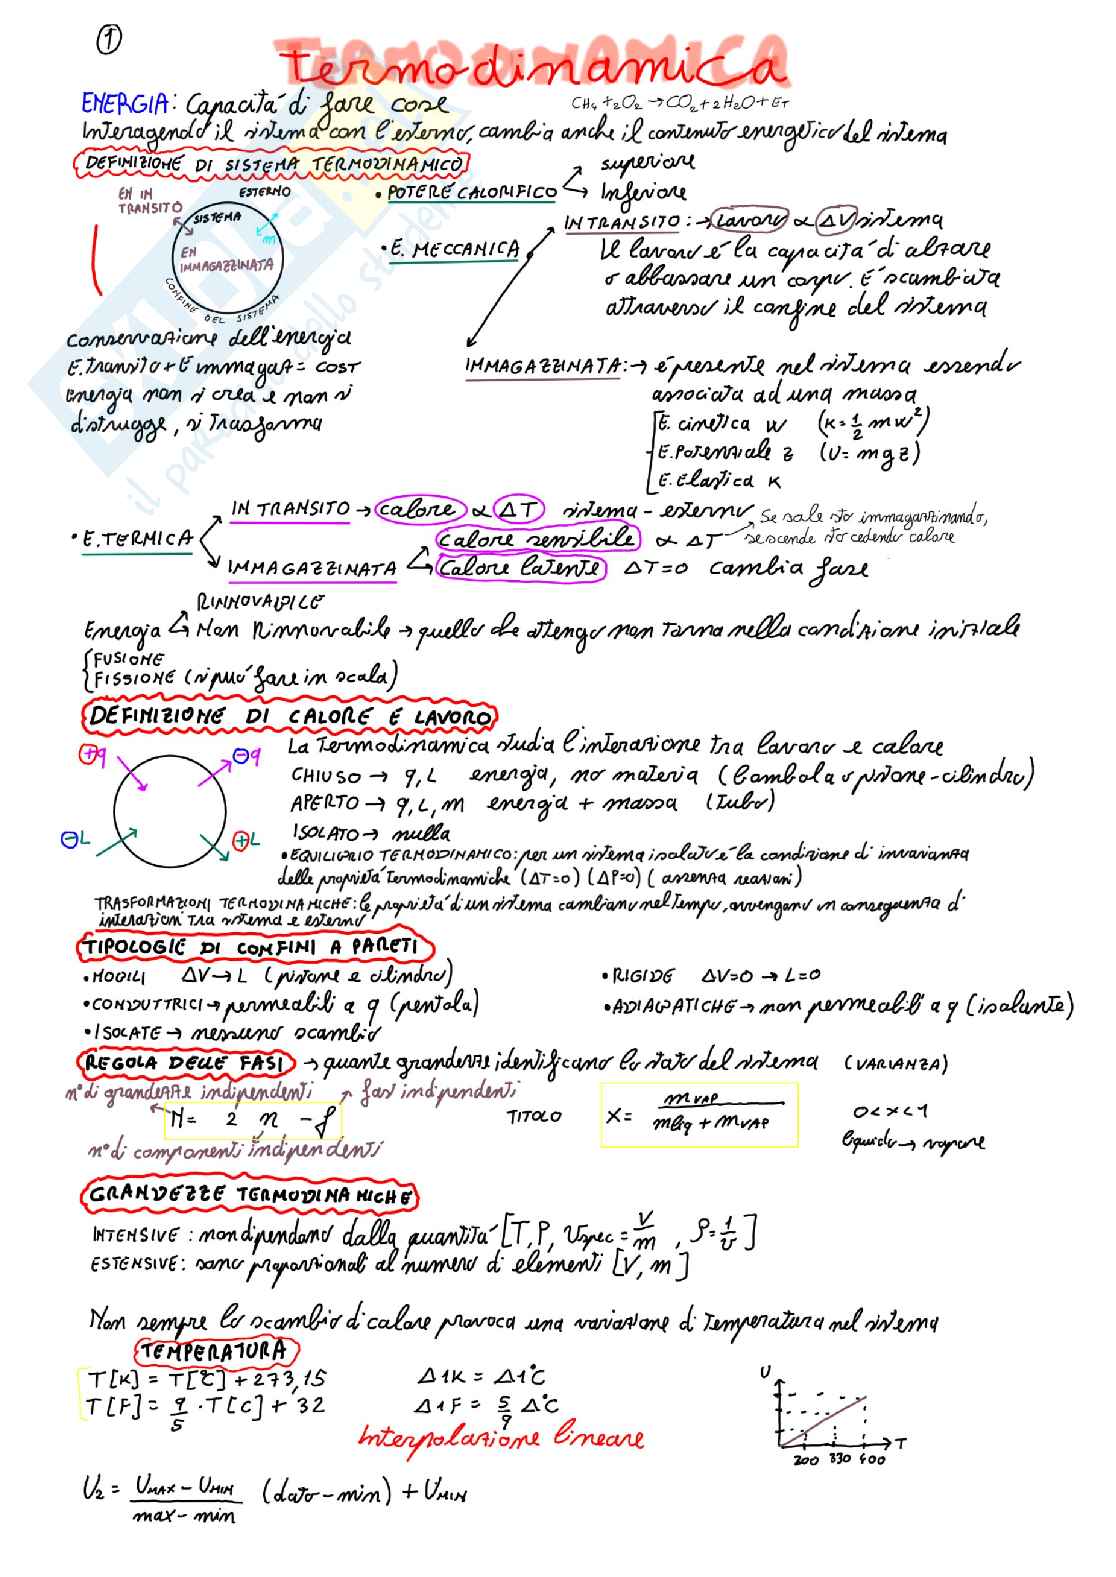 1
Termodinamica
ENERGIA: Capacitá di fare cose
CH4 + 2O2 → CO2 + 2H2O + ET
Interagendo il sistema con l'esterno, cambia anche il contenuto energetico del sistema
DEFINIZIONE DI SISTEMA TERMODINAMICO
EN IN TRANSITO
ESTERNO
SISTEMA
m
EN IMMAGAZZINATA
CONFINE DEL SISTEMA
• POTERE CALORIFICO
superiore
Inferiore
• E. MECCANICA
IN TRANSITO: → Lavoro ∝ ΔV sistema
Il lavoro é la capacitá di alzare
o abbassare un corpo. É scambiata
attraverso il confine del sistema
Conservazione dell'energia
E. transito + E immagaz = COST
Energia non si crea e non si
distrugge, si Trasforma
IMMAGAZZINATA: → é presente nel sistema essendo
associata ad una massa
E. cinetica w (K = 1/2 m w²)
E. Potenziale z (U = m g z)
E. Elastica K
• E. TERMICA
IN TRANSITO → calore ∝ ΔT sistema - esterno
IMMAGAZZINATA
Calore sensibile ∝ ΔT
Se sale sto immagazzinando,
se scende sto cedendo calore
Calore latente ΔT=0 cambia fase
RINNOVABILE
Energia → Non Rinnovabile → quello che ottengo non torna nella condizione iniziale
FUSIONE
FISSIONE (si puó fare in scala)
DEFINIZIONE DI CALORE E LAVORO
+q
-q
-L
+L
La Termodinamica studia l'interazione tra lavoro e calore
CHIUSO → q, L energia, no materia (bombola o pistone-cilindro)
APERTO → q, L, m energia + massa (Tubo)
ISOLATO → nulla
• EQUILIBRIO TERMODINAMICO: per un sistema isolato é la condizione di invarianza
delle proprietá termodinamiche (ΔT=0) (ΔP=0) (assenza reazioni)
TRASFORMAZIONI TERMODINAMICHE: le proprietá di un sistema cambiano nel tempo, avvengono in conseguenza di
interazioni tra sistema e esterno
TIPOLOGIE DI CONFINI A PARETI
• MOBILI ΔV → L (pistone e cilindro)
• RIGIDE ΔV=0 → L=0
• CONDUTTRICI → permeabili a q (pentola)
• ADIABATICHE → non permeabili a q (isolante)
• ISOLATE → nessuno scambio
REGOLA DELLE FASI → quante grandezze identificano lo stato del sistema (VARIANZA)
n° di grandezze indipendenti
fasi indipendenti
N = 2 n - f
n° di componenti indipendenti
TITOLO
X = mVAP / mliq + mVAP
0 < x < 1
liquido → vapore
GRANDEZZE TERMODINAMICHE
INTENSIVE: non dipendono dalla quantitá [T, P, Vspec = V/m, ρ = 1/v]
ESTENSIVE: sono proporzionali al numero di elementi [V, m]
Non sempre lo scambio di calore provoca una variazione di Temperatura nel sistema
TEMPERATURA
T[K] = T[°C] + 273,15
Δ1K = Δ1°C
T[F] = 9/5 · T[C] + 32
Δ1F = 5/9 Δ°C
Interpolazione lineare
U
T
200 330 400
U2 = UMAX - UMIN / max - min (dato - min) + UMIN